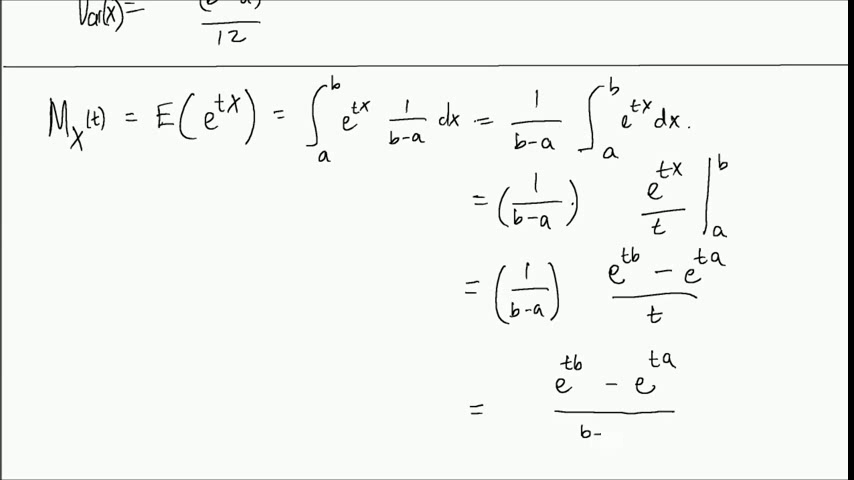 Var(x) = (b-a)² / 12
M_X(t) = E(e^{tX}) = ∫_a^b e^{tx} 1/(b-a) dx = 1/(b-a) ∫_a^b e^{tx} dx.
= (1/(b-a)) e^{tx}/t |_a^b
= (1/(b-a)) (e^{tb} - e^{ta})/t
= (e^{tb} - e^{ta})/(b-